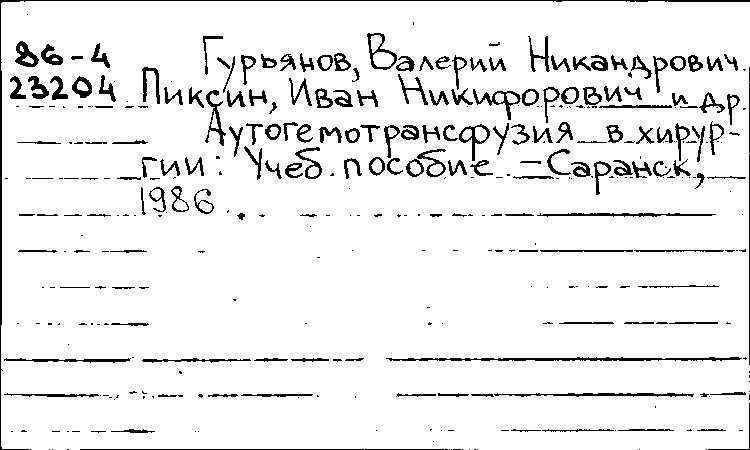 86-4 Гурьянов, Валерий Никандрович.
23204 Пиксин, Иван Никифорович и др.
Аутогемотрансфузия в хирур-
гии: Учеб. пособие - Саранск,
1986.